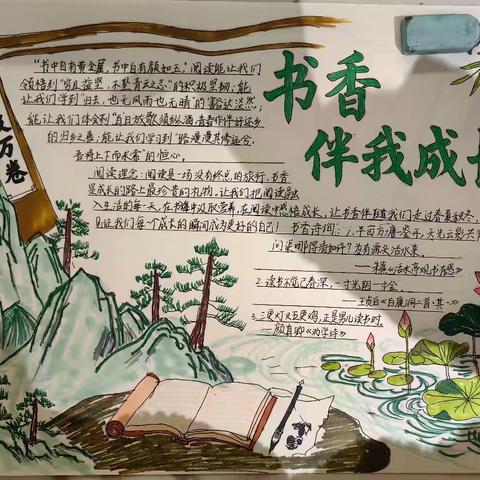 书香
伴我成长
万卷
"书中自有黄金屋,书中自有颜如玉。"阅读能让我们
领悟到"穷且益坚,不坠青云之志"的积极坚韧;能
让我们学到"归去,也无风雨也无晴"的豁达淡然;
能让我们体会到"白日放歌须纵酒,青春作伴好还乡
的归乡之喜;能让我们学习到"路漫漫其修远兮,
吾将上下而求索"的恒心。
阅读理念:阅读是一场没有终点的旅行,书香
是成长的路上最珍贵的礼物,让我们把阅读融
入生活的每一天,在书海中汲取营养,在阅读中感悟成长,让书香伴随我们走过春夏秋冬,
见证我们每个成长的瞬间成为更好的自己!书香诗词:1.半亩方塘一鉴开,天光云影共徘
问渠那得清如许?为有源头活水来。
——朱熹《活水亭观书有感》
2.读书不觉已春深,一寸光阴一寸金。
——王贞白《白鹿洞二首·其一》
3.三更灯火五更鸡,正是男儿读书时。
——颜真卿《劝学诗》